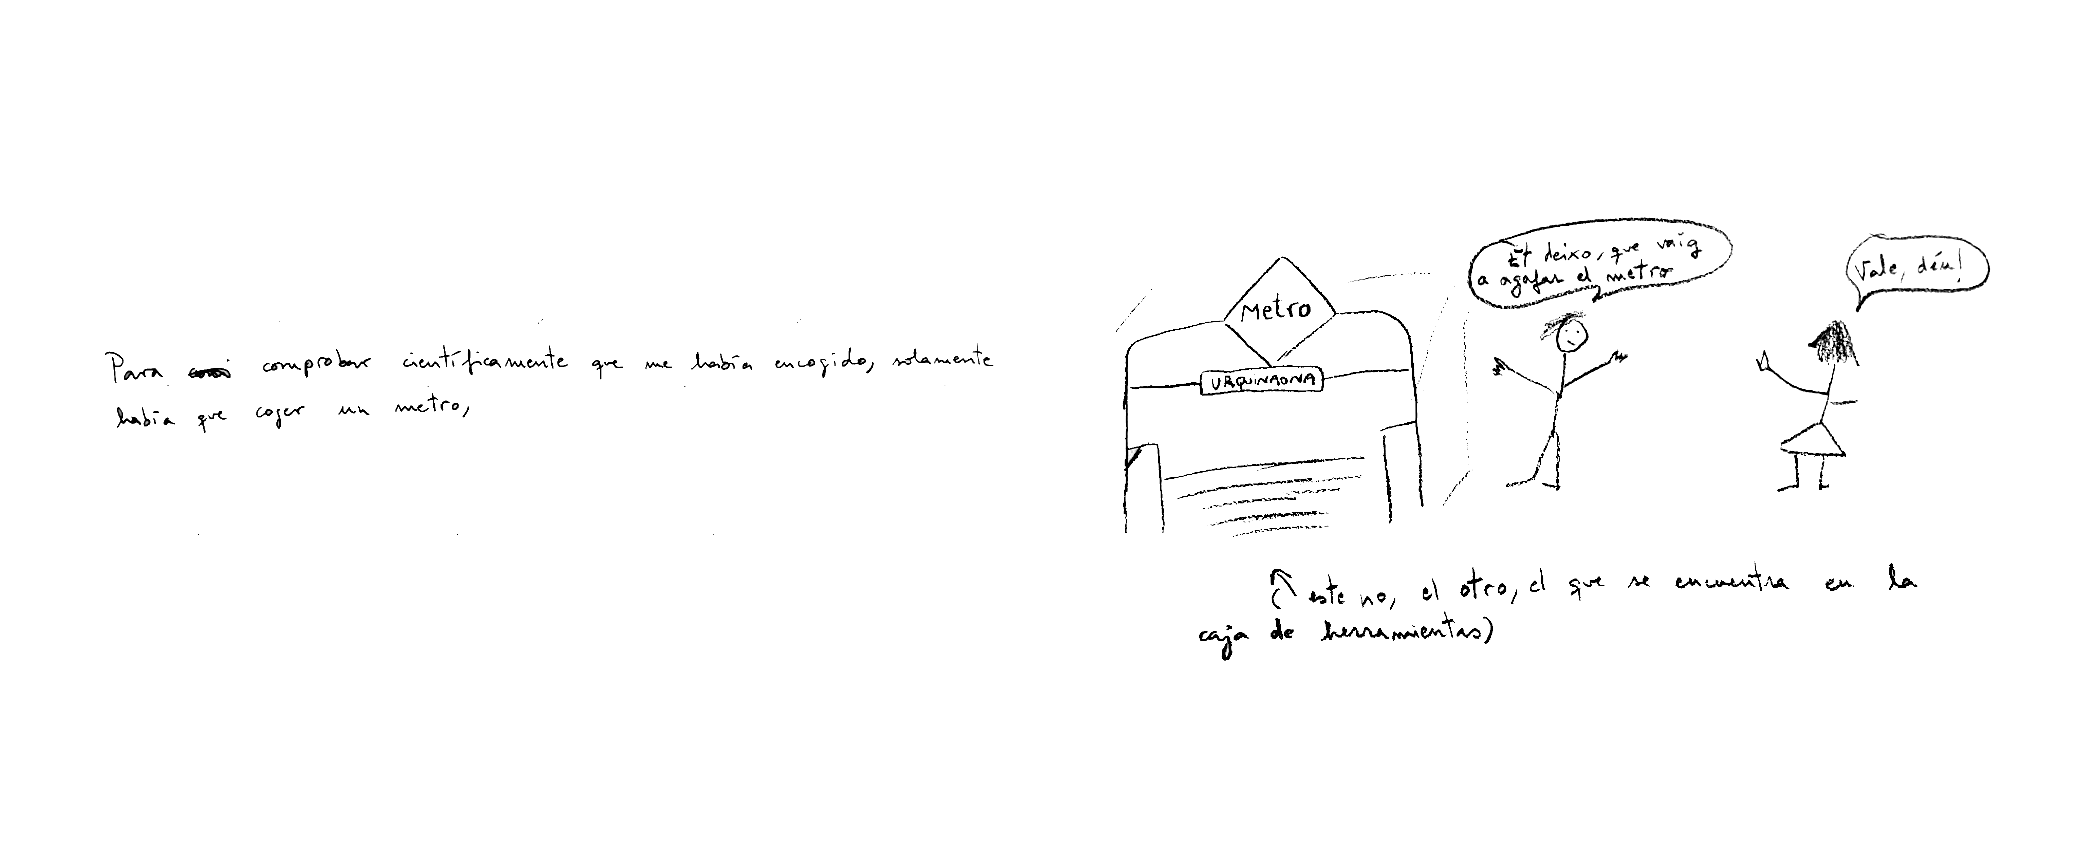 Para comprobar científicamente que me había encogido, solamente
había que coger un metro,
Metro
URQUINAONA
Et deixo, que vaig
a agafar el metro
Vale, déu!
este no, el otro, el que se encuentra en la
caja de herramientas)